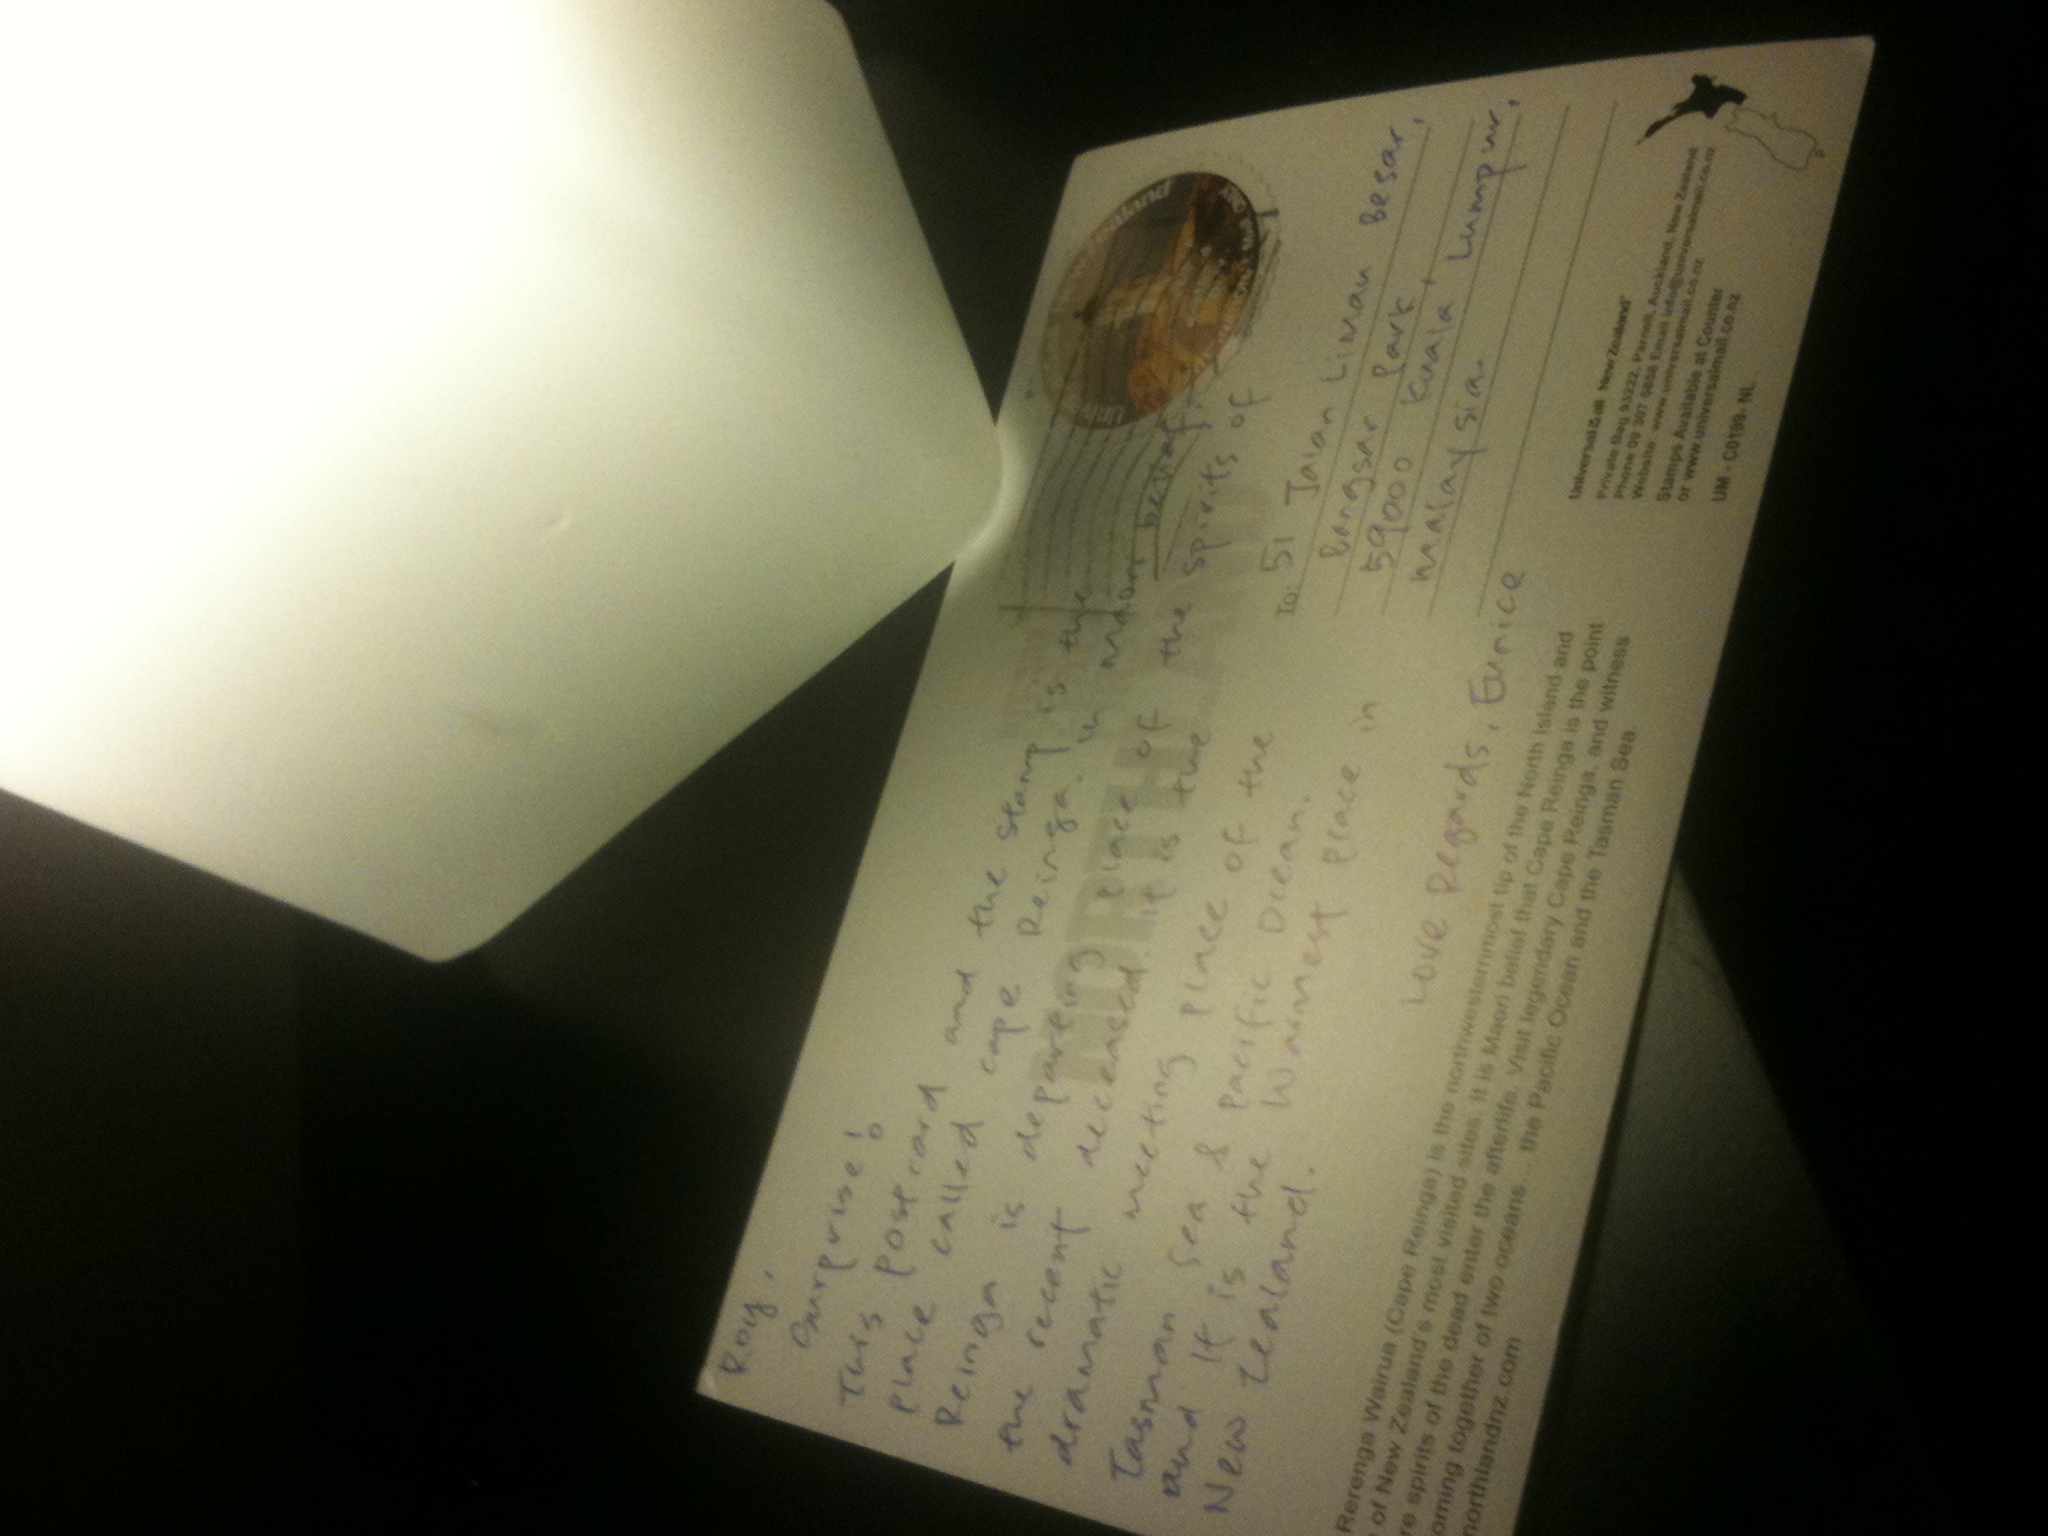 Roy,
Surprise!
This postcard and the stamp is the
place called cape Reinga. in Maori belief,
Reinga is departing place of the spirits of
the recent deceased. It is the
dramatic meeting place of the
Tasman Sea & Pacific Ocean.
and It is the Warmest place in
New Zealand.
Love Regards, Eunice
NORTHLAND
To: 51 Jalan Limau Besar,
Bangsar Park,
59000 Kuala Lumpur,
Malaysia
Rerenga Wairua (Cape Reinga) is the northwesternmost tip of the North Island and
of New Zealand's most visited sites. It is Maori belief that Cape Reinga is the point
re spirits of the dead enter the afterlife. Visit legendary Cape Reinga, and witness
oming together of two oceans... the Pacific Ocean and the Tasman Sea.
northlandnz.com
UniversalMail New Zealand
Private Bag 93222, Parnell, Auckland, New Zealand
Phone 09 307 5858 Email info@universalmail.co.nz
Website: www.universalmail.co.nz
Stamps Available at Counter
or www.universalmail.co.nz
UM - C0199- NL